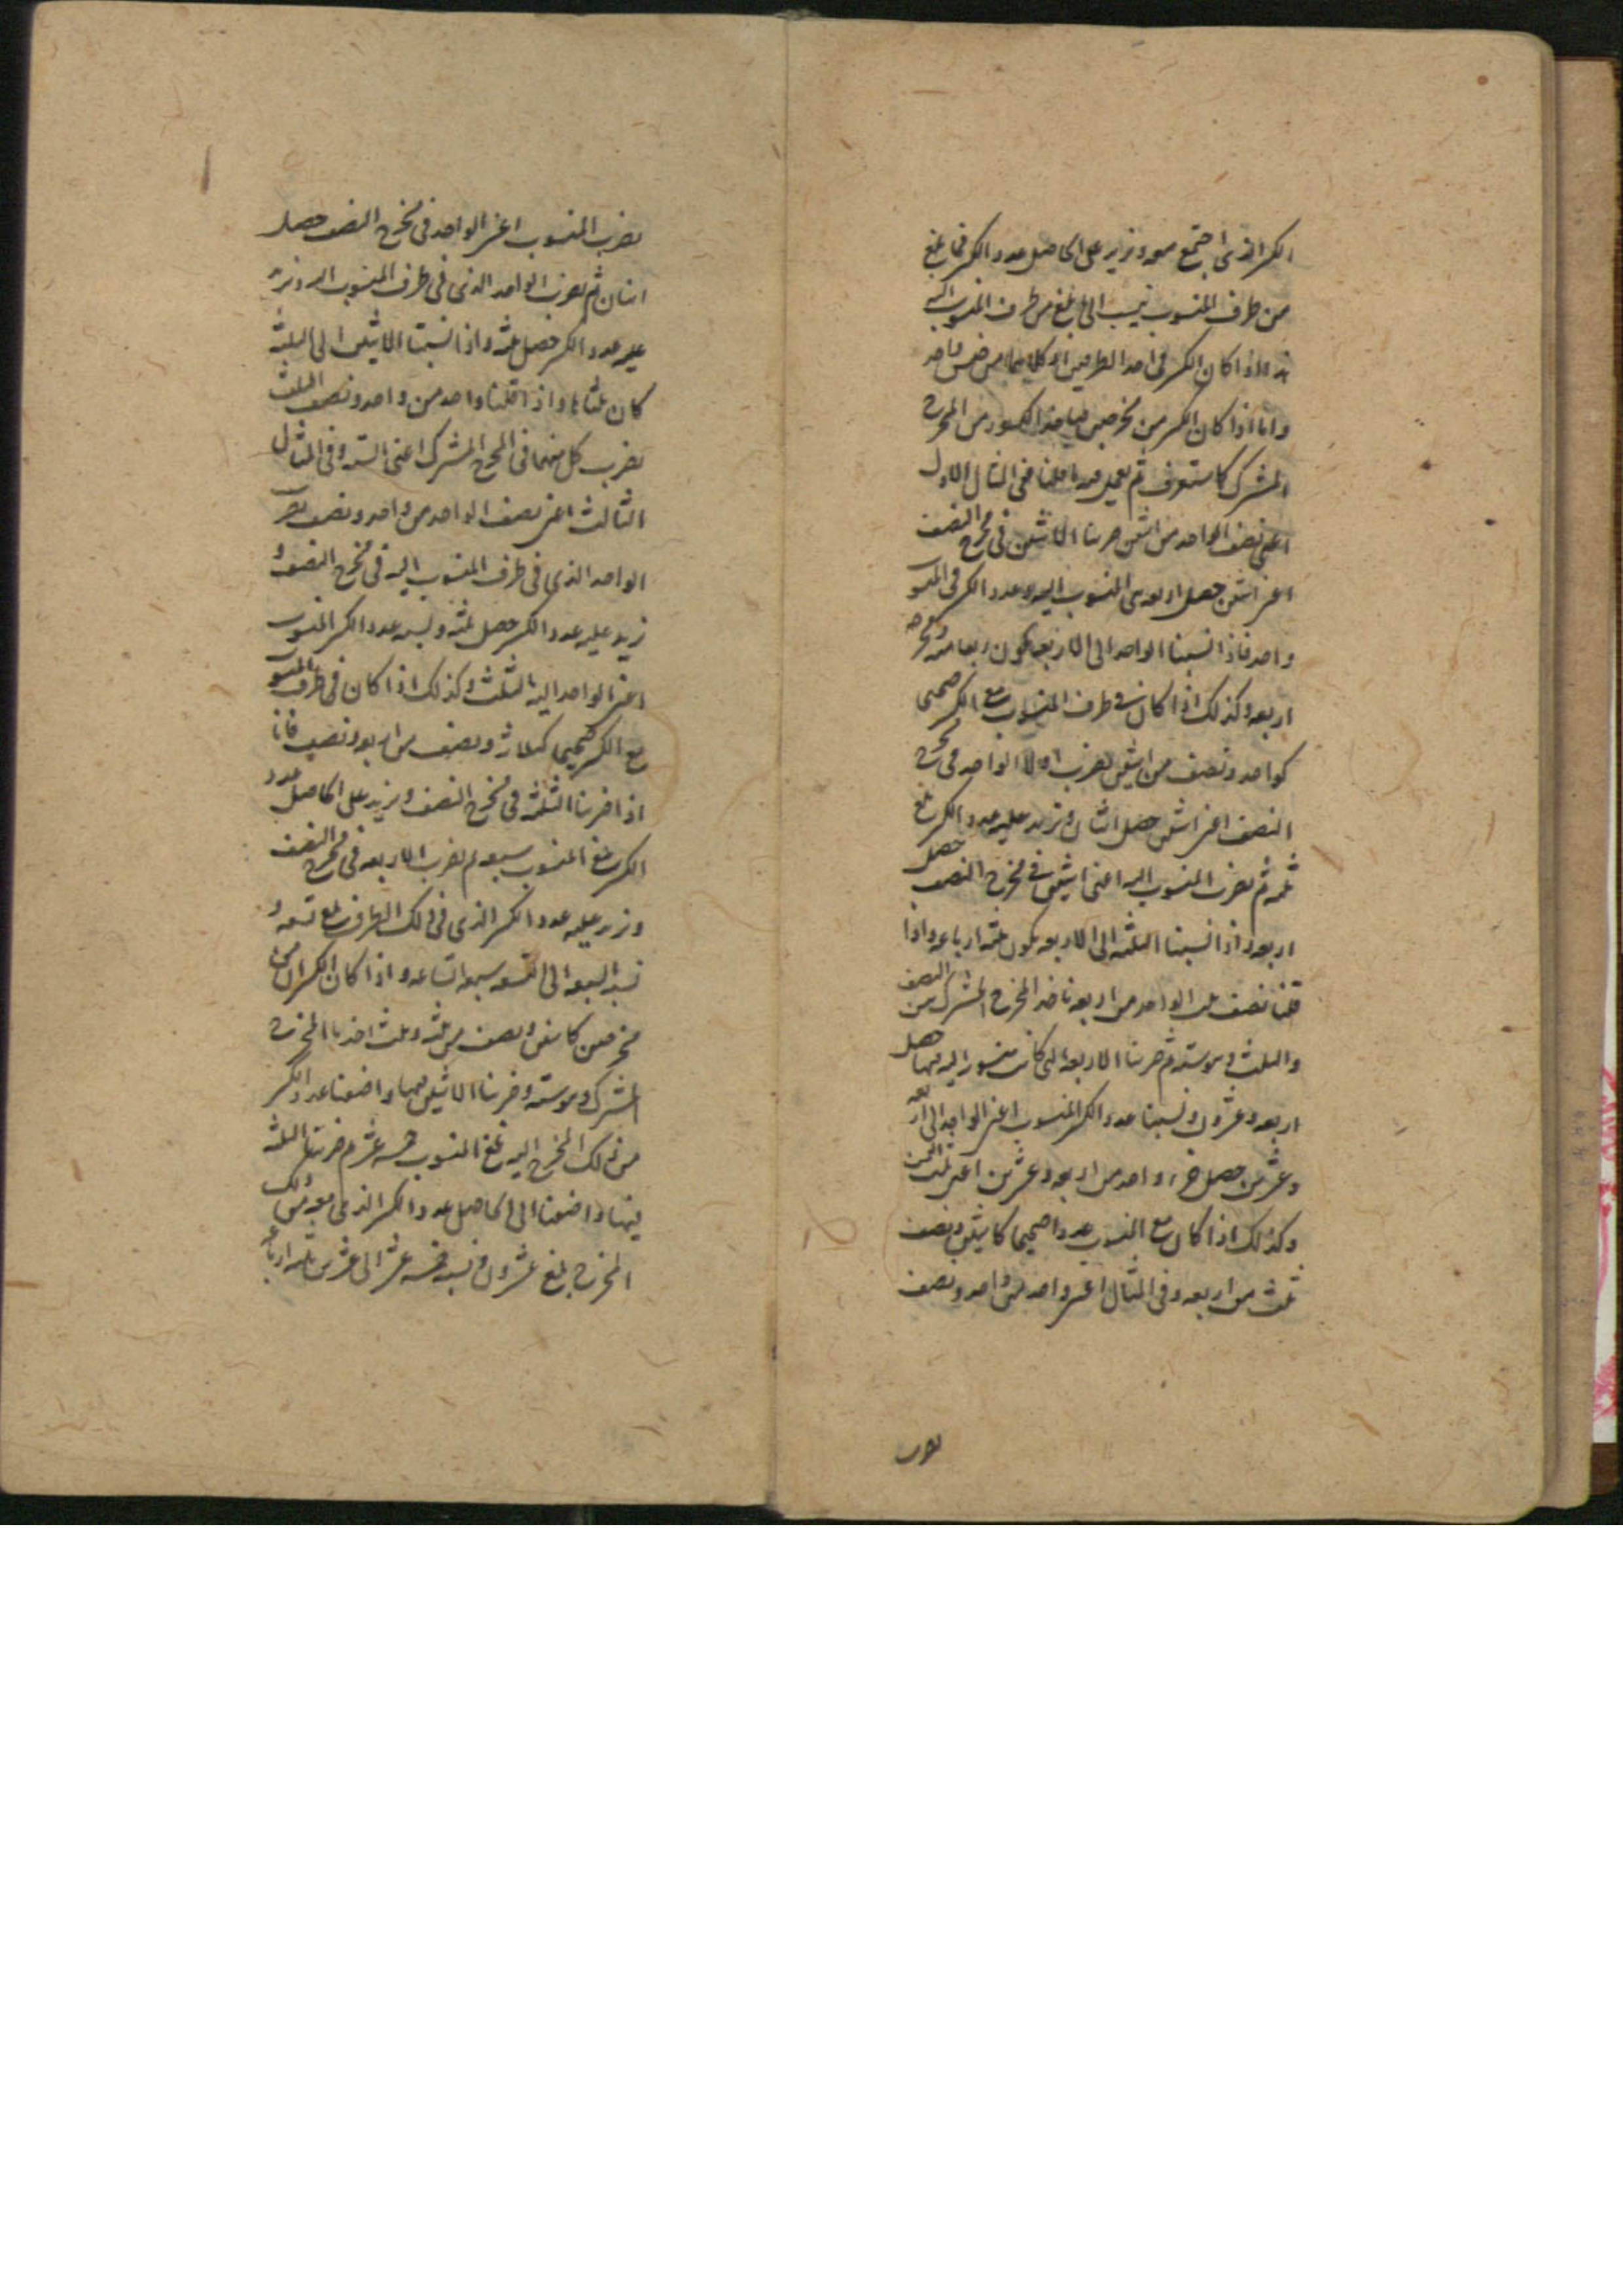 الكسر الذى اجتمع معه ونزيد على الحاصل عدد الكسر فما بلغ
من طرف المنسوب ننسب الى ما بلغ من طرف المنسوب اليه
هذا اذا كان الكسر فى احد الطرفين او كليهما من جنس واحد
واما اذا كان الكسر من مخرجين فيأخذ الكسور من المخرج
المشترك كما ستعرف ثم نعمل به ما قلنا ففى المثال الاول
اعنى نصف الواحد من اثنين ضربنا الاثنين فى مخرج النصف
اعنى اثنين حصل اربعه هى المنسوب اليه وعدد الكسر فى المنسوب
واحد فاذا نسبنا الواحد الى الاربعة يكون ربعا
اربعه وكذلك اذا كان فى طرف المنسوب مع الكسر صحيحى
كواحد ونصف من اثنين نضرب اولا الواحد فى مخرج
النصف اعنى اثنين حصل اثنان ونزيد عليه عدد الكسر بلغ
ثلثه ثم نضرب المنسوب اليه اعنى اثنين فى مخرج النصف حصل
اربعه واذا نسبنا الثلثه الى الاربعه يكون ثلثه ارباعه واذا
قلنا نصف ثلث الواحد من اربعه ناخذ المخرج المشترك بين النصف
والثلث وهو سته ثم ضربنا الاربعه التى كانت منسوب اليه فيها حصل
اربعه وعشرون ونسبنا عدد الكسر المنسوب اعنى الواحد الى اربعه
وعشرين حصل جزء واحد من اربعه وعشرين اعنى ثلث الثمن
وكذلك اذا كان مع المنسوب عددا صحيحا كاثنين ونصف
ثلث من اربعه وفى المثال اعنى واحد من واحد ونصف
نضرب
نضرب المنسوب اعنى الواحد فى مخرج النصف حصل
اثنان ثم نضرب الواحد الذى فى طرف المنسوب اليه ونزيد
عليه عدد الكسر حصل ثلثه واذا نسبنا الاثنين الى الثلثة
كان ثلثاها واذا قلنا واحد من واحد ونصف الثلث
نضرب كل منهما فى المخرج المشترك اعنى الستة وفى المثال
الثالث اعنى نصف الواحد من واحد ونصف نضرب
الواحد الذى فى طرف المنسوب اليه فى مخرج النصف و
نزيد عليه عدد الكسر حصل ثلثه ونسبه عدد الكسر المنسوب
اعنى الواحد اليه بالثلث وكذلك اذا كان فى طرف المنسوب
مع الكسر صحيحا كثلاثه ونصف من اربعه ونصف فانا
اذا ضربنا الثلثة فى مخرج النصف ونزيد على الحاصل عدد
الكسر بلغ المنسوب سبعه ثم نضرب الاربعه فى مخرج النصف
ونزيد عليه عدد الكسر الذى فى ذلك الطرف بلغ تسعه و
نسبه السبعه الى التسعه سبعه اتساعه واذا كان الكسران من
مخرجين كاثنين ونصف من ثلثه وثلث اخذنا المخرج
المشترك وهو سته وضربنا الاثنين فيها واضفنا عدد الكسر
من ذلك المخرج اليه بلغ المنسوب خمسه عشر ثم ضربنا الثلثه
فيها واضفنا الى الحاصل عدد الكسر الذى معه من ذلك
المخرج بلغ عشرون ونسبه خمسه عشر الى عشرين ثلثه ارباعه